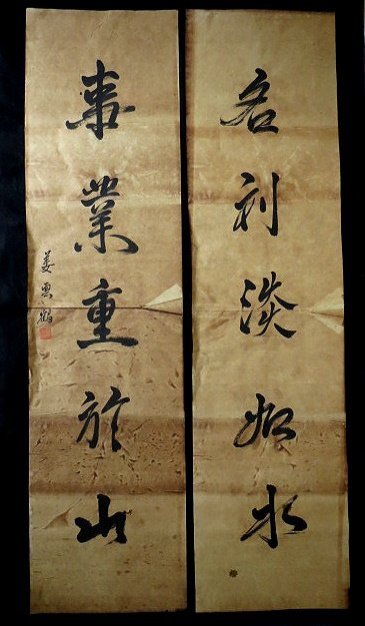 名利淡如水
事業重於山
姜